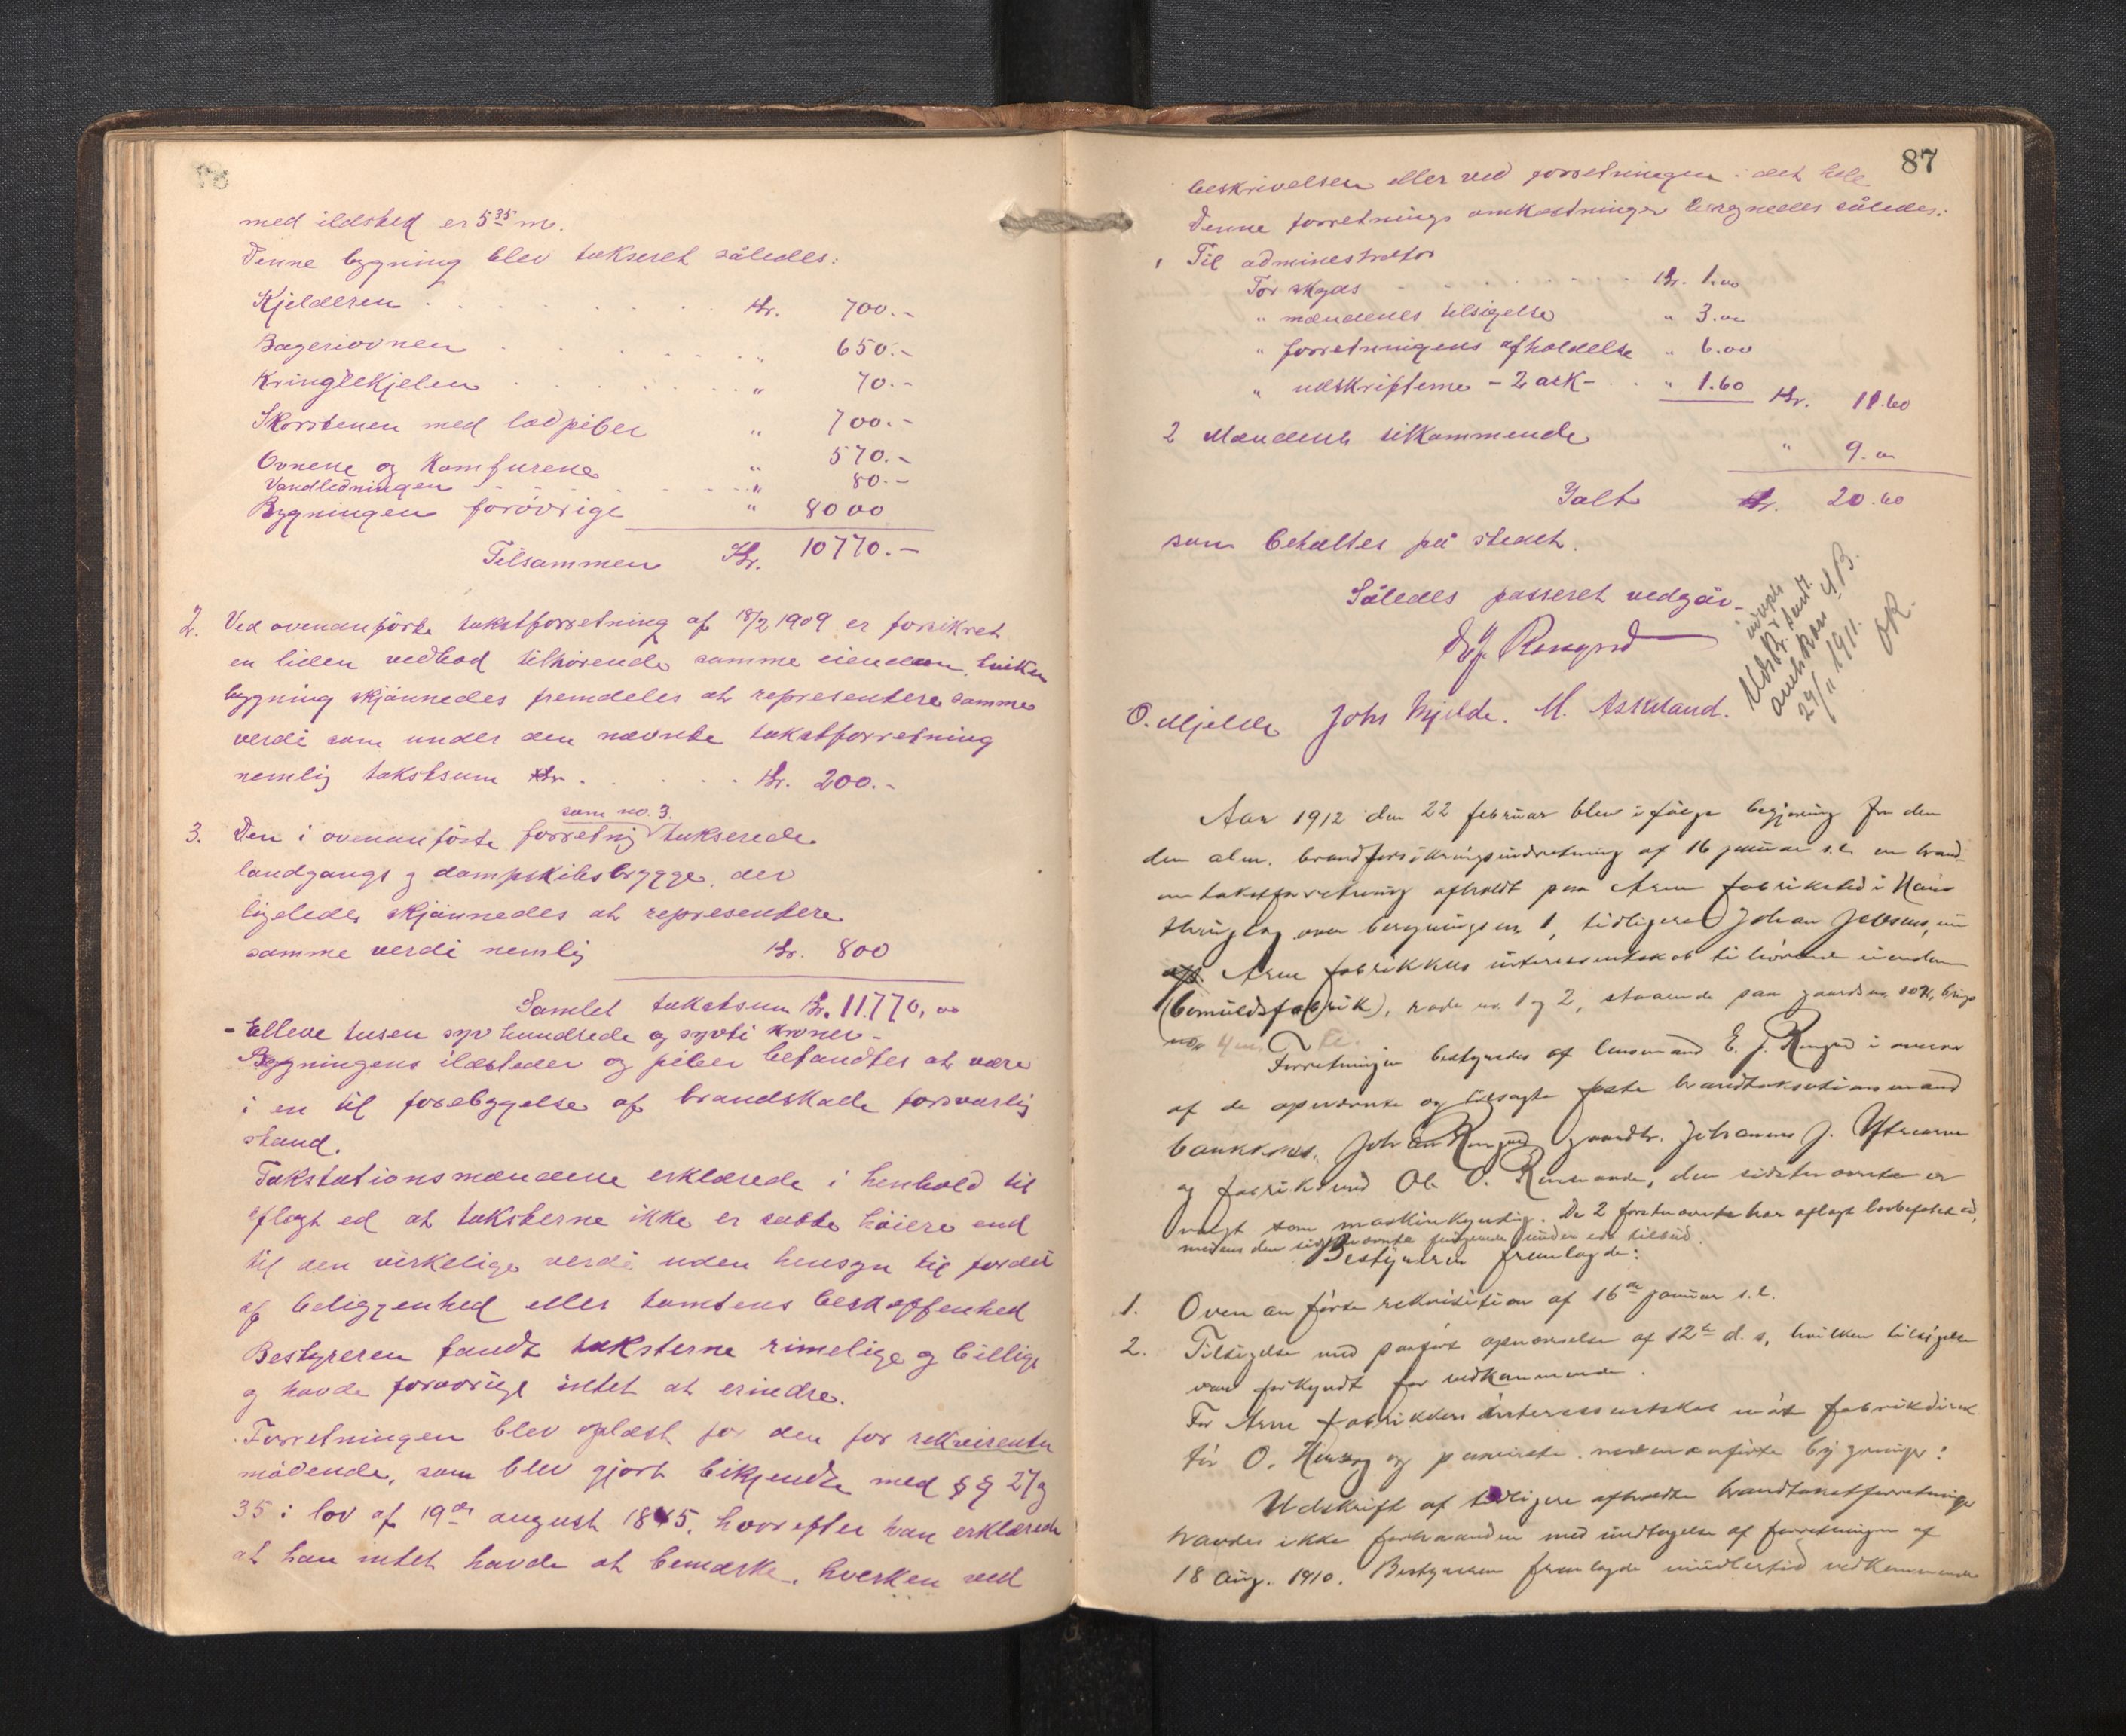 med ildsted er 5 35 m.
Denne bygning blev takseret således:
Kjelderen . . . . . . . Kr. 700.-
Bageriovnen . . . . . . „ 650.-
Kringlekjelen . . . . . . „ 70.-
Skorstenen med lodpiber „ 700.-
Ovnene og Komfurene „ 570.-
Vandledningen . . . . . „ 80.-
Bygningen forøvrig „ 8000
Tilsammen Kr. 10770.-
2. Ved ovenanførte takstforretning af 18/2 1909 er forsikret
en liden vedbod tilhørende samme eiendom, hvilken
bygning skjønnedes fremdeles at representere samme
verdi som under den nævnte takstforretning
nemlig takstsum Kr. . . . . . Kr. 200.-
som no. 3.
3. Den i ovenanførte forretnig takserede
landgangs og dampskibsbrygge, der
ligeledes skjønnedes at representere
samme verdi nemlig Kr. 800
Samlet takstsum Kr. 11.770,00
- Elleve tusen syv hundrede og sytti kroner -
Bygningens ildsteder og piber befandtes at være
i en til forebyggelse af brandskade forsvarlig
stand.
Takstationsmændene erklærede i henhold til
aflagt ed at taksterne ikke er satte høiere end
til den virkelige verdi uden hensyn til fordel
af beliggenhed eller tomtens beskaffenhed
Bestyreren fandt taksterne rimelige og billige
og havde forøvrigt intet at erindre.
Forretningen blev oplæst for den for rekvirenten
mødende, som blev gjort bekjendt med §§ 27 og
35 i lov af 19de august 1845, hvorefter han erklærede
at han intet havde at bemærke, hverken ved
87
beskrivelsen eller ved forretningen i det hele
Denne forretnings omkostninger beregnedes således:
1 Til administrator
For skyds . . . . . Kr. 1.00
„ mændenes tilsigelse „ 3.00
„ forretningens afholdelse „ 6.00
„ udskrifterne - 2 ark - . . „ 1.60 Kr. 11.60
2 Mændenes tilkommende „ 9.00
Ialt Kr. 20.60
som betaltes på stedet.
Således passeret vedgår
E J. Romgrd
O. Mjelde Johs Mjelde. M. Askeland.
Udskr. sendt
29/11 1911.
OR.
Aar 1912 den 22 februar blev ifølge begjæring fra den
den alm. brandforsikringsindretning af 16 januar s.å. en brand-
takstforretning afholdt paa Arne fabriksted i Haus
thinglag over bygnings nr. 1, tidligere Johan Jebsens, nu
Arne fabrikkers interessentskab tilhørende eiendom
(bomuldsfabrik), rode no. 1 og 2, staaende paa gaards no.
Forretningen bestyredes af lensmand E. J. Romgrd i overvær
af de opnævnte og tilsagte faste brandtakstationsmænd
Johan Romgrd, gaardbr. Johannes J. Ytrearne
og Ole O. den sidstnævnte er
valgt som maskinkyndig. De 2 førstnævnte har aflagt lovbefalet ed,
medens den sidstnævnte under ed tilbud.
Bestyreren fremlagde:
1. Ovenanførte rekvisition af 16de januar s.å.
2. Tilsigelse med paaført opnævnelse af 12te d. s, hvilken tilsigelse
var forkyndt for vedkommende.
For Arne fabrikkers interessentskab mødte fabrikdirek
tør O. og paaviste nedenanførte bygninger:
Udskrift af tidligere afholdte brandtakstforretninger
havdes ikke forhaanden med undtagelse af forretningen af
18 Aug. 1910. Bestyreren fremlagde imidlertid vedkommende